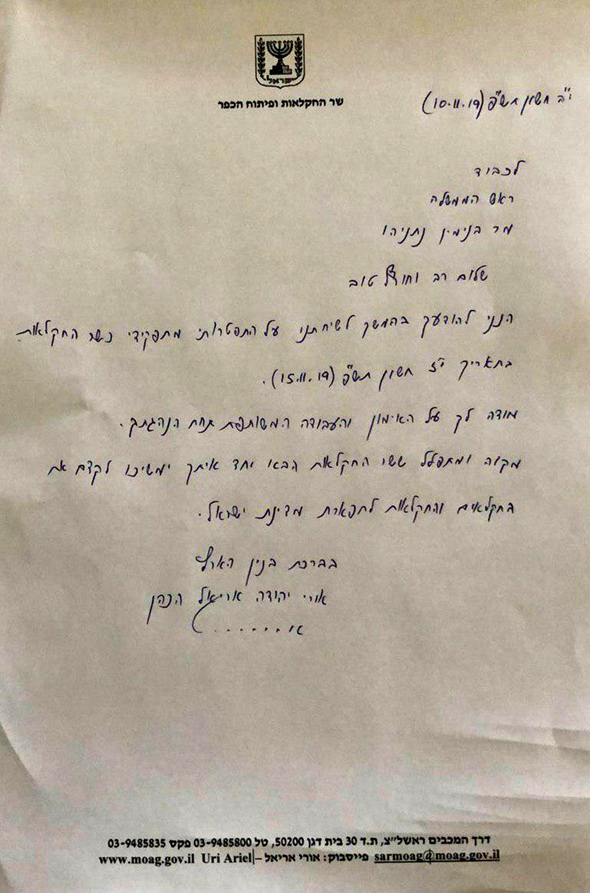 ישראל
שר החקלאות ופיתוח הכפר
י"ב חשון תש"פ (10.11.19)
לכבוד
ראש הממשלה
מר בנימין נתניהו
שלום רב וחורף טוב
הנני להודיעך בהמשך לשיחתנו על התפטרותי מתפקידי כשר החקלאות.
בתאריך י"ז חשון תש"פ (15.11.19).
מודה לך על האימון והעבודה המשותפת תחת הנהגתך.
מקוה ומתפלל ששר החקלאות הבא יחד איתך ימשיכו לקדם את
החקלאים והחקלאות לתפארת מדינת ישראל.
בברכת בנין הארץ
אורי יהודה אריאל הכהן
דרך המכבים ראשל"צ, ת.ד 30 בית דגן 50200, טל 03-9485800 פקס 03-9485835
www.moag.gov.il Uri Ariel – פייסבוק: אורי אריאל sarmoag@moag.gov.il